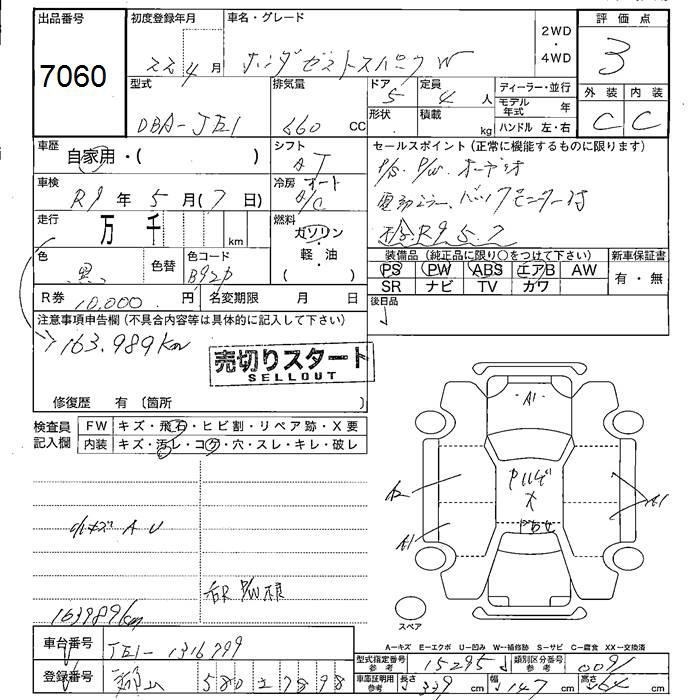 出品番号
7060
初度登録年月
22年4月
車名・グレード
ホンダ ゼストスパーク W
2WD
・
4WD
評価点
3
外装 内装
C C
型式
DBA-JE1
排気量
660 CC
ドア
5
定員
4 人
形状
積載
kg
ディーラー・並行
モデル年式 年
ハンドル 左・右
車歴
自家用・( )
シフト
AT
セールスポイント(正常に機能するものに限ります)
P/S. P/W. オーデオ
電動ミラー、バックモニター付
検R9.5.7
車検
R9年5月(7日)
冷房 オート
A/C
走行
万 千
km
燃料
ガソリン
・
軽・油
( )
色
黒
色替
色コード
B92P
装備品(純正品に限り〇をつけて下さい)
PS PW ABS エアB AW
SR ナビ TV カワ
新車保証書
有・無
R券 10,000. 円
名変期限 月 日
後日品
注意事項申告欄(不具合内容等は具体的に記入して下さい)
163.989km
売切りスタート
SELLOUT
修復歴 有(箇所 )
検査員
記入欄
FW キズ・飛石・ヒビ割・リペア跡・X要
内装 キズ・汚レ・コゲ・穴・スレ・キレ・破レ
小キズAU
163989km
A1
A2
A1
A1
X
スペア
A-キズ E-エクボ U-凹み W-補修跡 S-サビ C-腐食 XX-交換済
車台番号
JE1-1316799
登録番号
580 7898
型式指定番号
参考
15295
類別区分番号
参考
0091
車庫証明用
参考
長さ 339 cm
幅 147 cm
高さ 164 cm